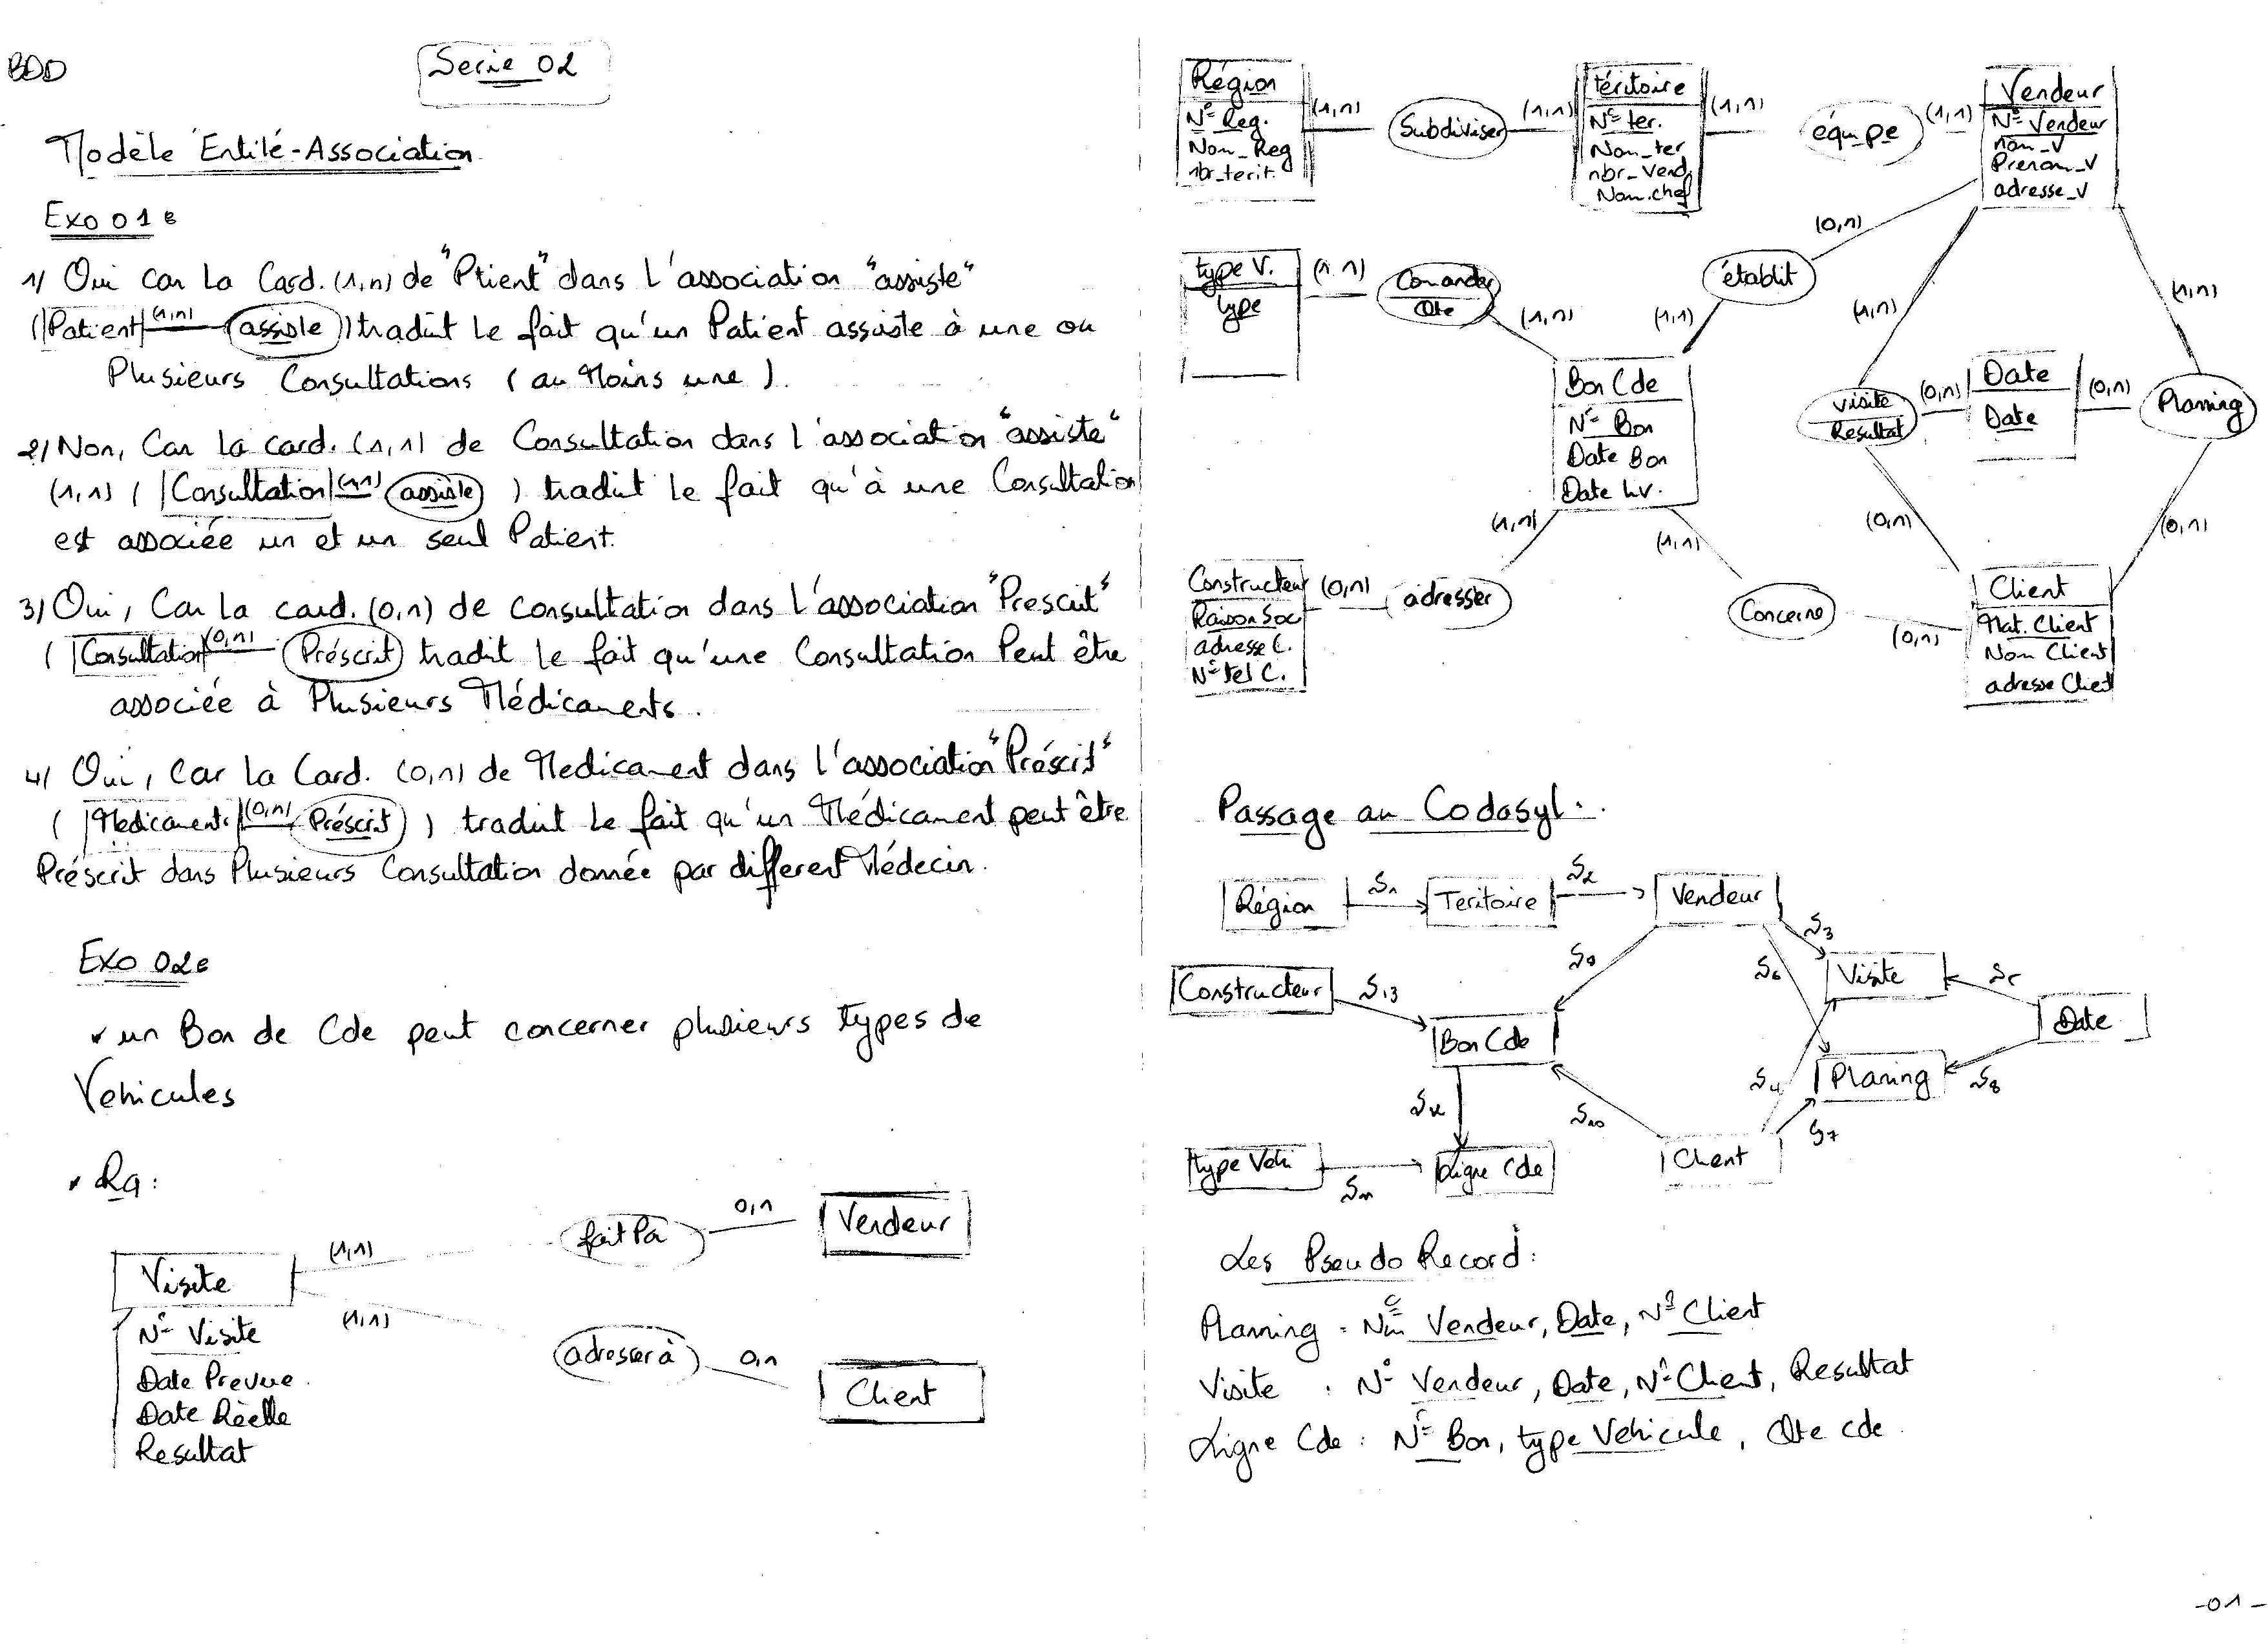 BDD
Serie 02
Modèle Entité-Association
Exo 01 :
1/ Oui car La Card. (1,n) de "Ptient" dans L'association "assiste"
(Patient (1,n) assiste) traduit Le fait qu'un Patient assiste à une ou
Plusieurs Consultations (au Moins une).
2/ Non, Car La card. (1,1) de Consultation dans l'association "assiste"
(1,1) ( Consultation (1,1) assiste ) traduit Le fait qu'à une Consultation
est associée un et un seul Patient.
3/ Oui, Car La card. (0,n) de consultation dans L'association "Prescrit"
( Consultation (0,n) Préscrit) traduit Le fait qu'une Consultation Peut être
associée à Plusieurs Médicaments.
4/ Oui, Car La Card. (0,n) de Medicament dans L'association "Préscrit"
( Medicament (0,n) Préscrit ) traduit Le fait qu'un Médicament peut être
Préscrit dans Plusieurs Consultation donnée par different Médecin.
Exo 02 :
un Bon de Cde peut concerner plusieurs types de
Vehicules
Rq :
Visite
N° Visite
Date Prevue
Date Réelle
Resultat
(1,1)
fait Par
0,n
Vendeur
(1,1)
adresser à
0,n
Client
Région
N° Reg.
Nom_Reg
nbr_terit.
(1,n)
Subdiviser
(1,1)
téritoire
N° ter.
Nom_ter
nbr_Vend.
Nom.chef
(1,n)
équipe
(1,1)
Vendeur
N° Vendeur
nom_V
Prenom_V
adresse_V
type V.
type
(1,n)
Comander
Qte
(1,n)
établit
(0,n)
(1,1)
(1,n)
(1,n)
Bon Cde
N° Bon
Date Bon
Date Liv.
visite
Resultat
(0,n)
Date
Date
(0,n)
Planing
(1,n)
(1,1)
(0,n)
(0,n)
Constructeur
Raison Soc
adresse C.
N° tel C.
(0,n)
adresser
Concerne
(0,n)
Client
Mat. Client
Nom Client
adresse Client
Passage au Codasyl :
Région
S1
Teritoire
S2
Vendeur
S3
Constructeur
S13
S9
S6
Visite
S5
Bon Cde
Date
S12
S10
S4
Planing
S8
type Vehi
S11
Ligne Cde
Client
S7
Les Pseudo Record :
Planing : Num Vendeur, Date, N° Client
Visite : N° Vendeur, Date, N° Client, Resultat
Ligne Cde : N° Bon, type Vehicule, Qte cde
-01-